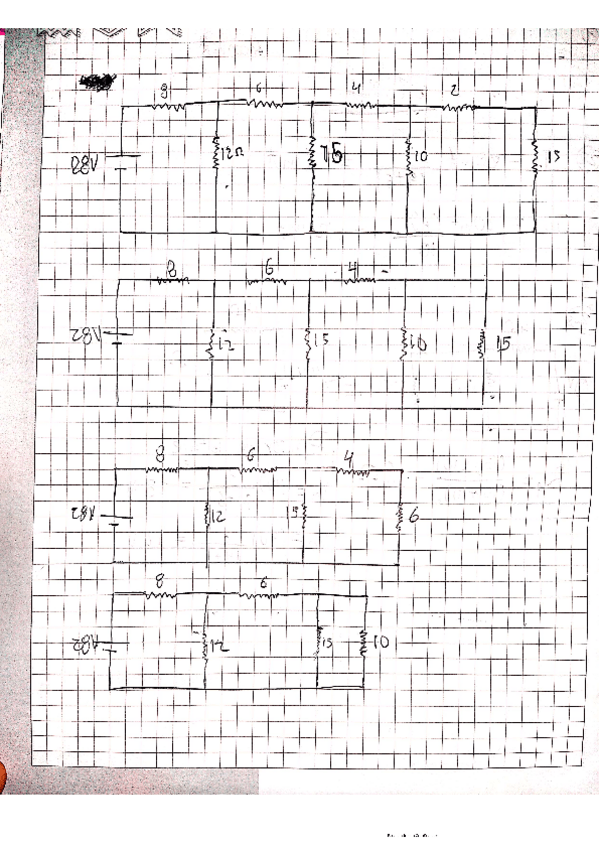 8 6 4 2
28V 12Ω 15 10 15
8 6 4
28V 12 15 10 15
8 6 4
28V 12 15 6
8 6
28V 12 15 10